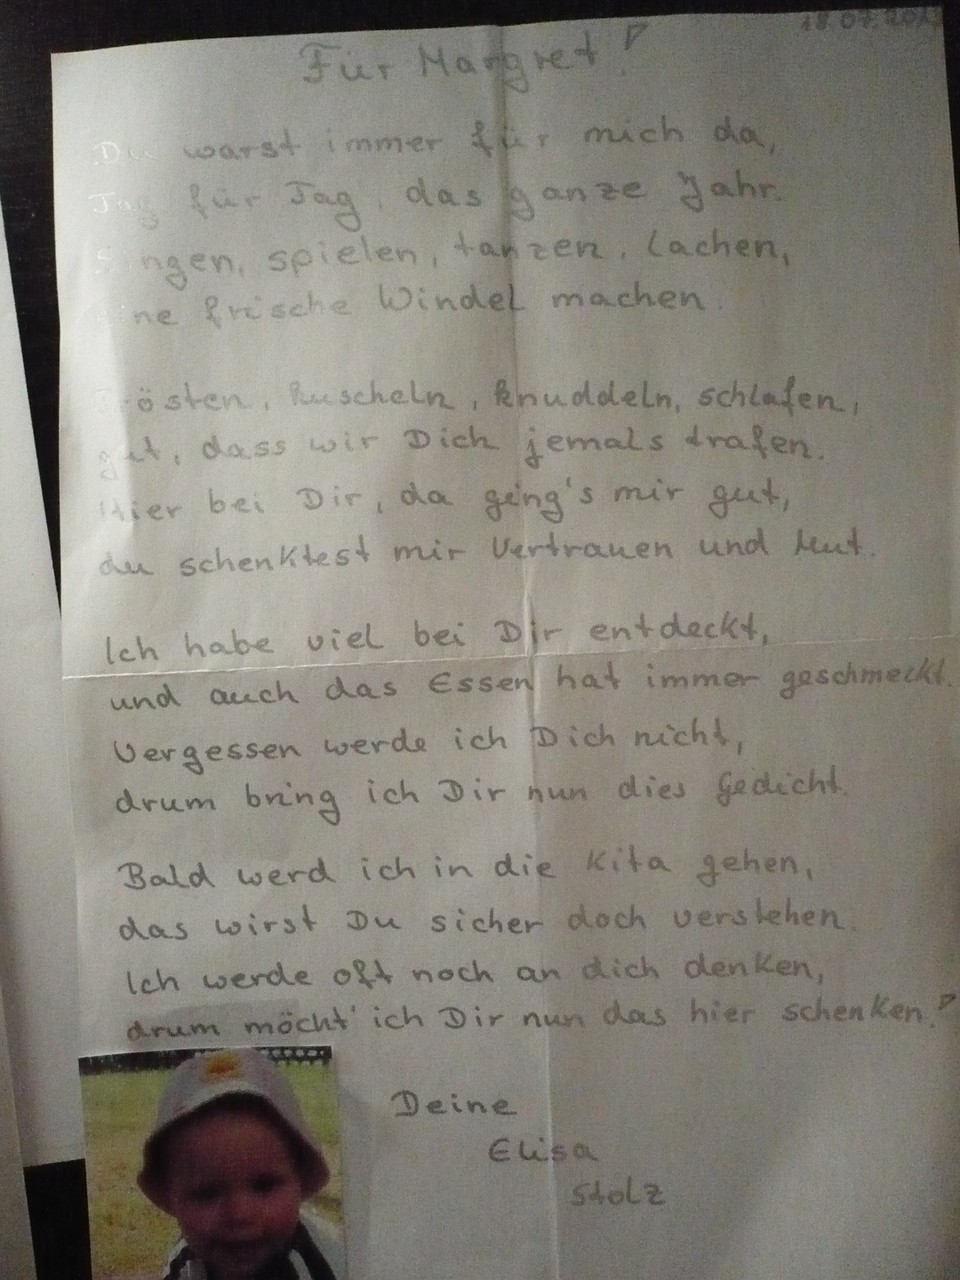 18.07.20
Für Margret!
Du warst immer für mich da,
Tag für Tag, das ganze Jahr.
Singen, spielen, tanzen, lachen,
eine frische Windel machen.
Trösten, kuscheln, knuddeln, schlafen,
gut, dass wir Dich jemals trafen.
Hier bei Dir, da ging's mir gut,
du schenktest mir Vertrauen und Mut.
Ich habe viel bei Dir entdeckt,
und auch das Essen hat immer geschmeckt.
Vergessen werde ich Dich nicht,
drum bring ich Dir nun dies Gedicht.
Bald werd ich in die Kita gehen,
das wirst Du sicher doch verstehen.
Ich werde oft noch an dich denken,
drum möcht' ich Dir nun das hier schenken!
Deine
Elisa
Stolz